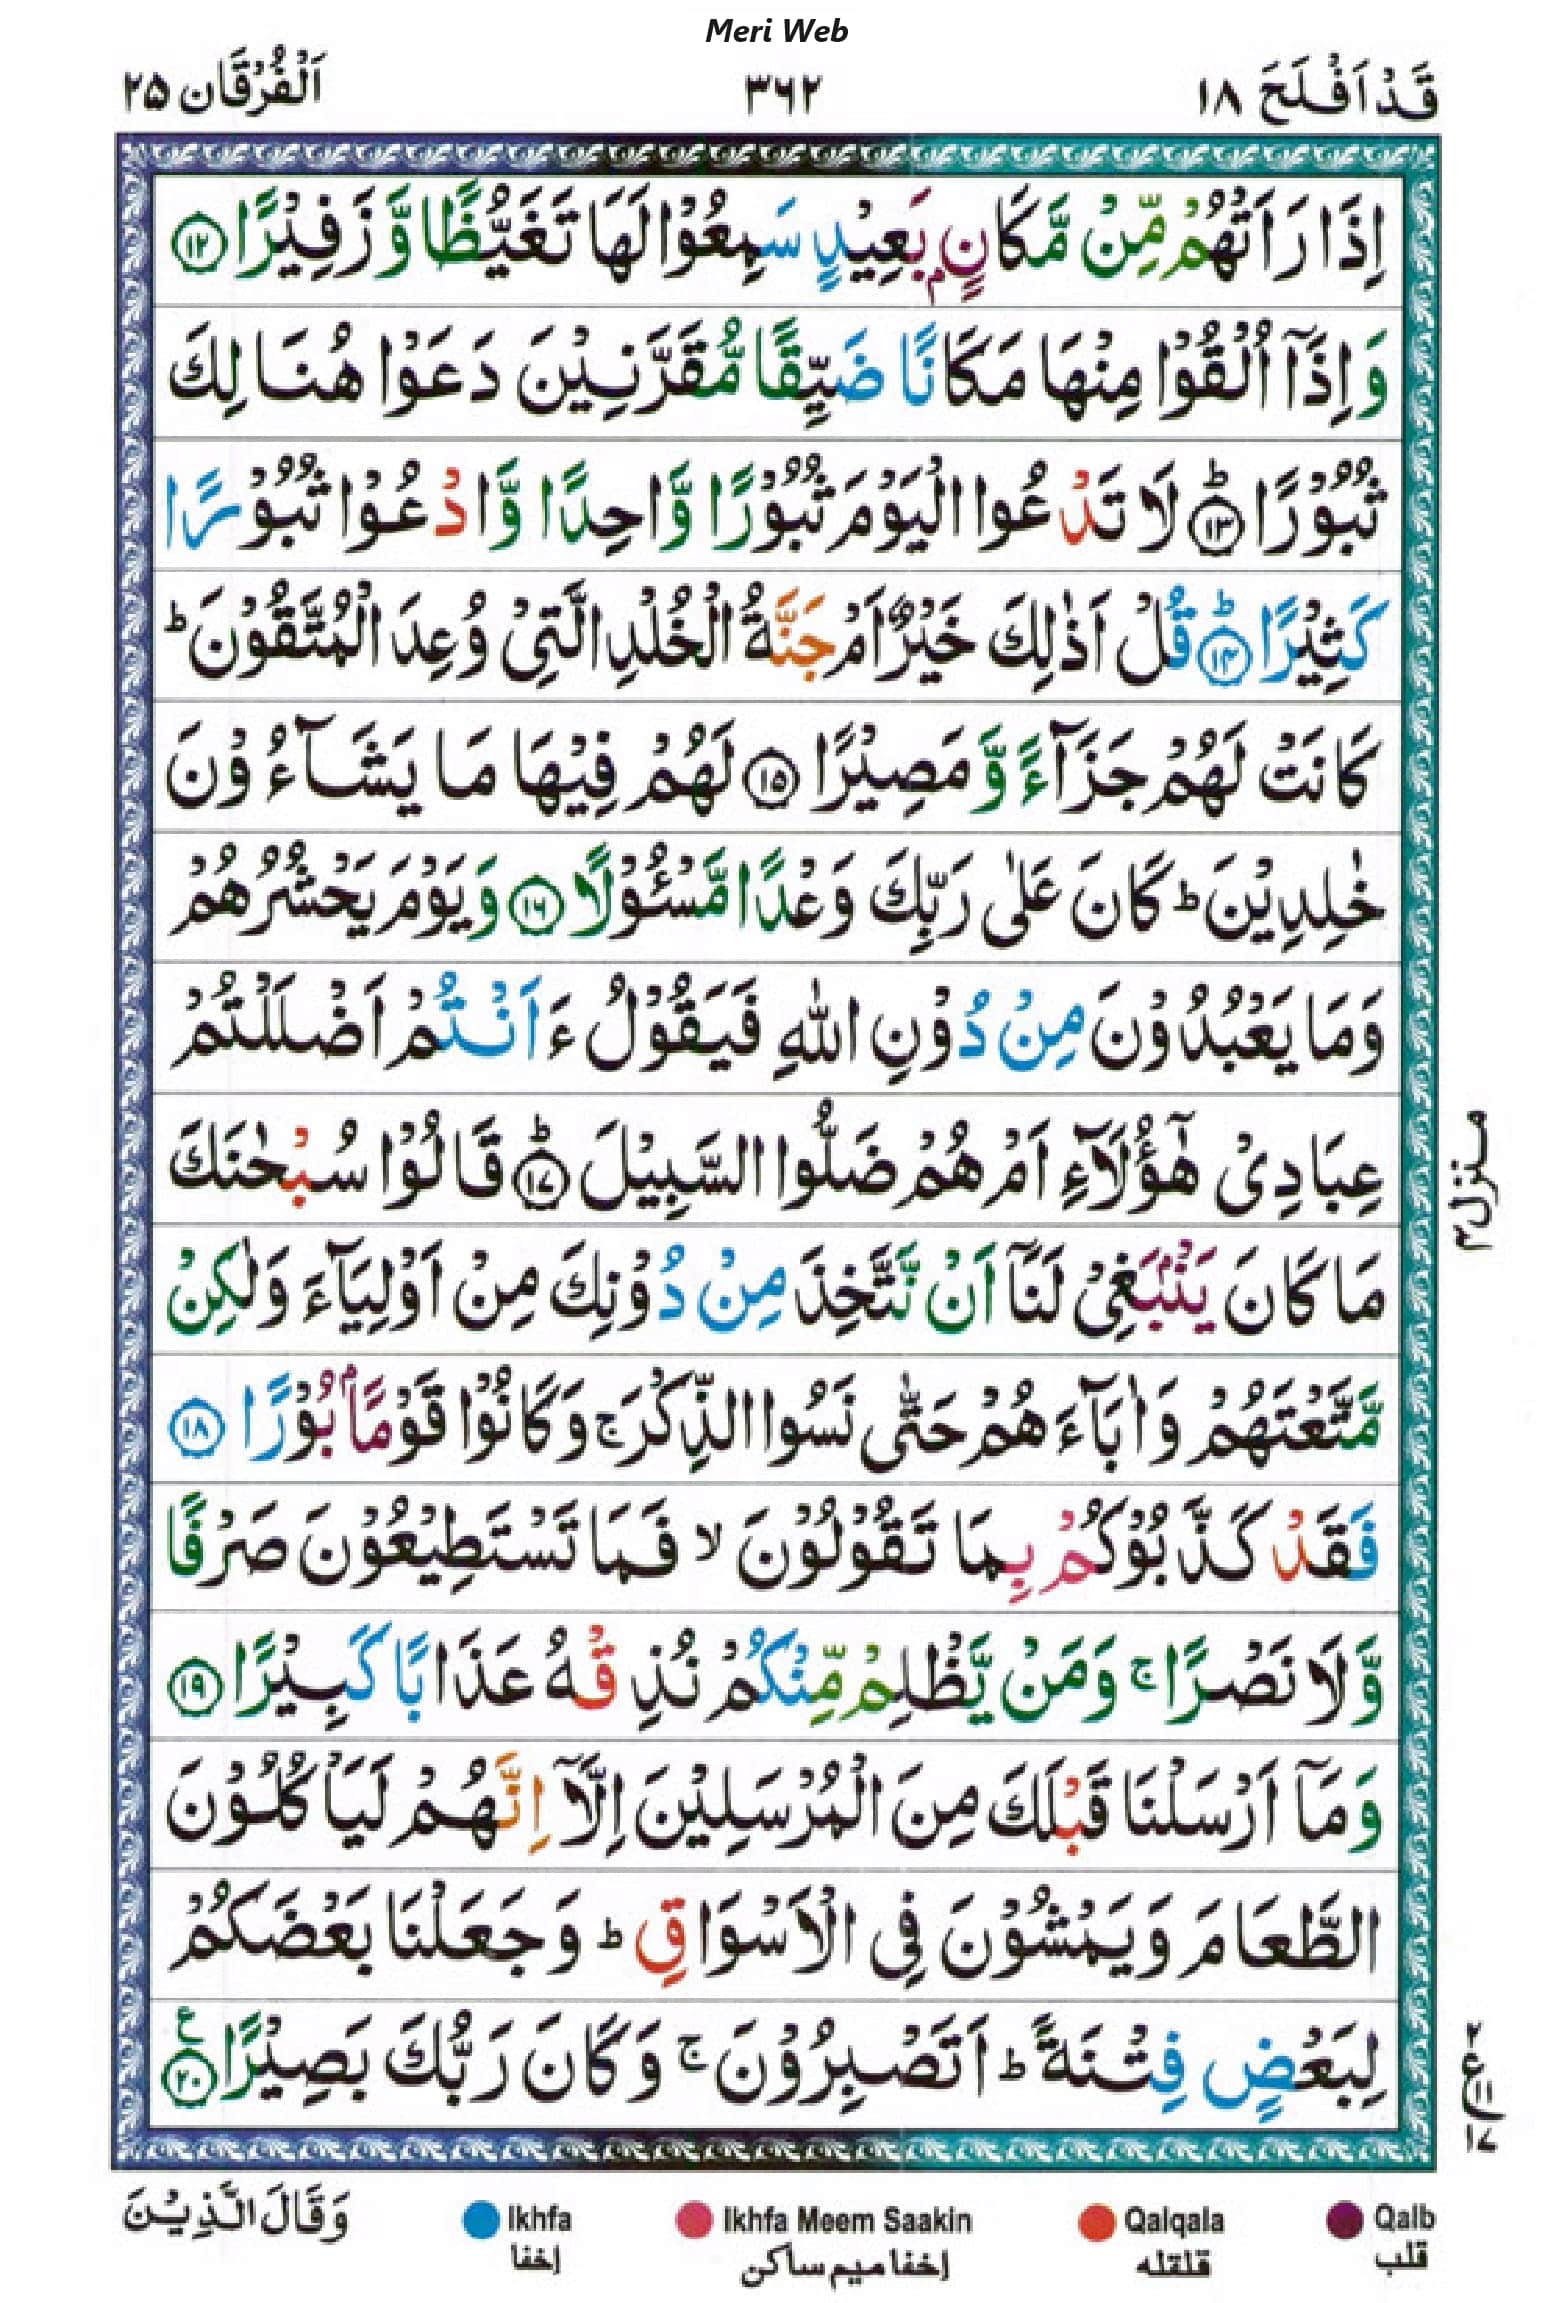 Meri Web
قَدْ اَفْلَحَ ١٨
٣٦٢
اَلْفُرْقَان ٢٥
اِذَا رَاَتْهُمْ مِّنْ مَّكَانٍۭ بَعِيْدٍ سَمِعُوْا لَهَا تَغَيُّظًا وَّ زَفِيْرًا ۝١٢
وَ اِذَاۤ اُلْقُوْا مِنْهَا مَكَانًا ضَيِّقًا مُّقَرَّنِيْنَ دَعَوْا هُنَالِكَ
ثُبُوْرًا ؕ۝١٣ لَا تَدْعُوا الْيَوْمَ ثُبُوْرًا وَّاحِدًا وَّ ادْعُوْا ثُبُوْرًا
كَثِيْرًا ؕ۝١٤ قُلْ اَذٰلِكَ خَيْرٌ اَمْ جَنَّةُ الْخُلْدِ الَّتِيْ وُعِدَ الْمُتَّقُوْنَ ؕ
كَانَتْ لَهُمْ جَزَآءً وَّ مَصِيْرًا ۝١٥ لَهُمْ فِيْهَا مَا يَشَآءُوْنَ
خٰلِدِيْنَ ؕ كَانَ عَلٰى رَبِّكَ وَعْدًا مَّسْـُٔوْلًا ۝١٦ وَ يَوْمَ يَحْشُرُهُمْ
وَمَا يَعْبُدُوْنَ مِنْ دُوْنِ اللّٰهِ فَيَقُوْلُ ءَاَنْتُمْ اَضْلَلْتُمْ
عِبَادِيْ هٰۤؤُلَآءِ اَمْ هُمْ ضَلُّوا السَّبِيْلَ ؕ۝١٧ قَالُوْا سُبْحٰنَكَ
مَا كَانَ يَنْۢبَغِيْ لَنَاۤ اَنْ نَّتَّخِذَ مِنْ دُوْنِكَ مِنْ اَوْلِيَآءَ وَلٰكِنْ
مَّتَّعْتَهُمْ وَ اٰبَآءَهُمْ حَتّٰى نَسُوا الذِّكْرَ ۚ وَكَانُوْا قَوْمًۢا بُوْرًا ۝١٨
فَقَدْ كَذَّبُوْكُمْ بِمَا تَقُوْلُوْنَ ۙ فَمَا تَسْتَطِيْعُوْنَ صَرْفًا
وَّلَا نَصْرًا ۚ وَمَنْ يَّظْلِمْ مِّنْكُمْ نُذِقْهُ عَذَابًا كَبِيْرًا ۝١٩
وَمَاۤ اَرْسَلْنَا قَبْلَكَ مِنَ الْمُرْسَلِيْنَ اِلَّاۤ اِنَّهُمْ لَيَاْكُلُوْنَ
الطَّعَامَ وَيَمْشُوْنَ فِي الْاَسْوَاقِ ؕ وَجَعَلْنَا بَعْضَكُمْ
لِبَعْضٍ فِتْنَةً ؕ اَتَصْبِرُوْنَ ۚ وَكَانَ رَبُّكَ بَصِيْرًا ۝٢٠ ع
منزل ٤
٢
ع
١١
١٧
وَقَالَ الَّذِيْنَ
Ikhfa
اخفا
Ikhfa Meem Saakin
اخفا میم ساکن
Qalqala
قلقله
Qalb
قلب